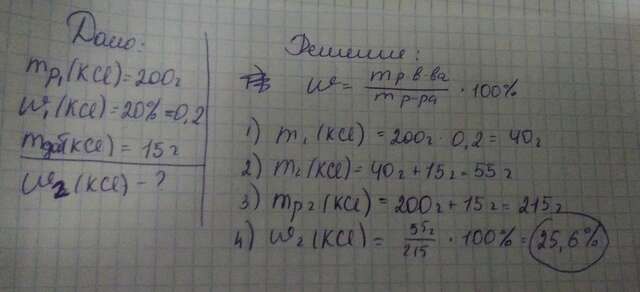 Дано:
mр₁(KCl) = 200г
ω₁(KCl) = 20% = 0,2
mдоб(KCl) = 15г
ω₂(KCl) - ?
Решение:
ω = mр.в-ва / mр-ра · 100%
1) m₁(KCl) = 200г · 0,2 = 40г
2) m₂(KCl) = 40г + 15г = 55г
3) mр₂(KCl) = 200г + 15г = 215г
4) ω₂(KCl) = 55г / 215 · 100% = 25,6%